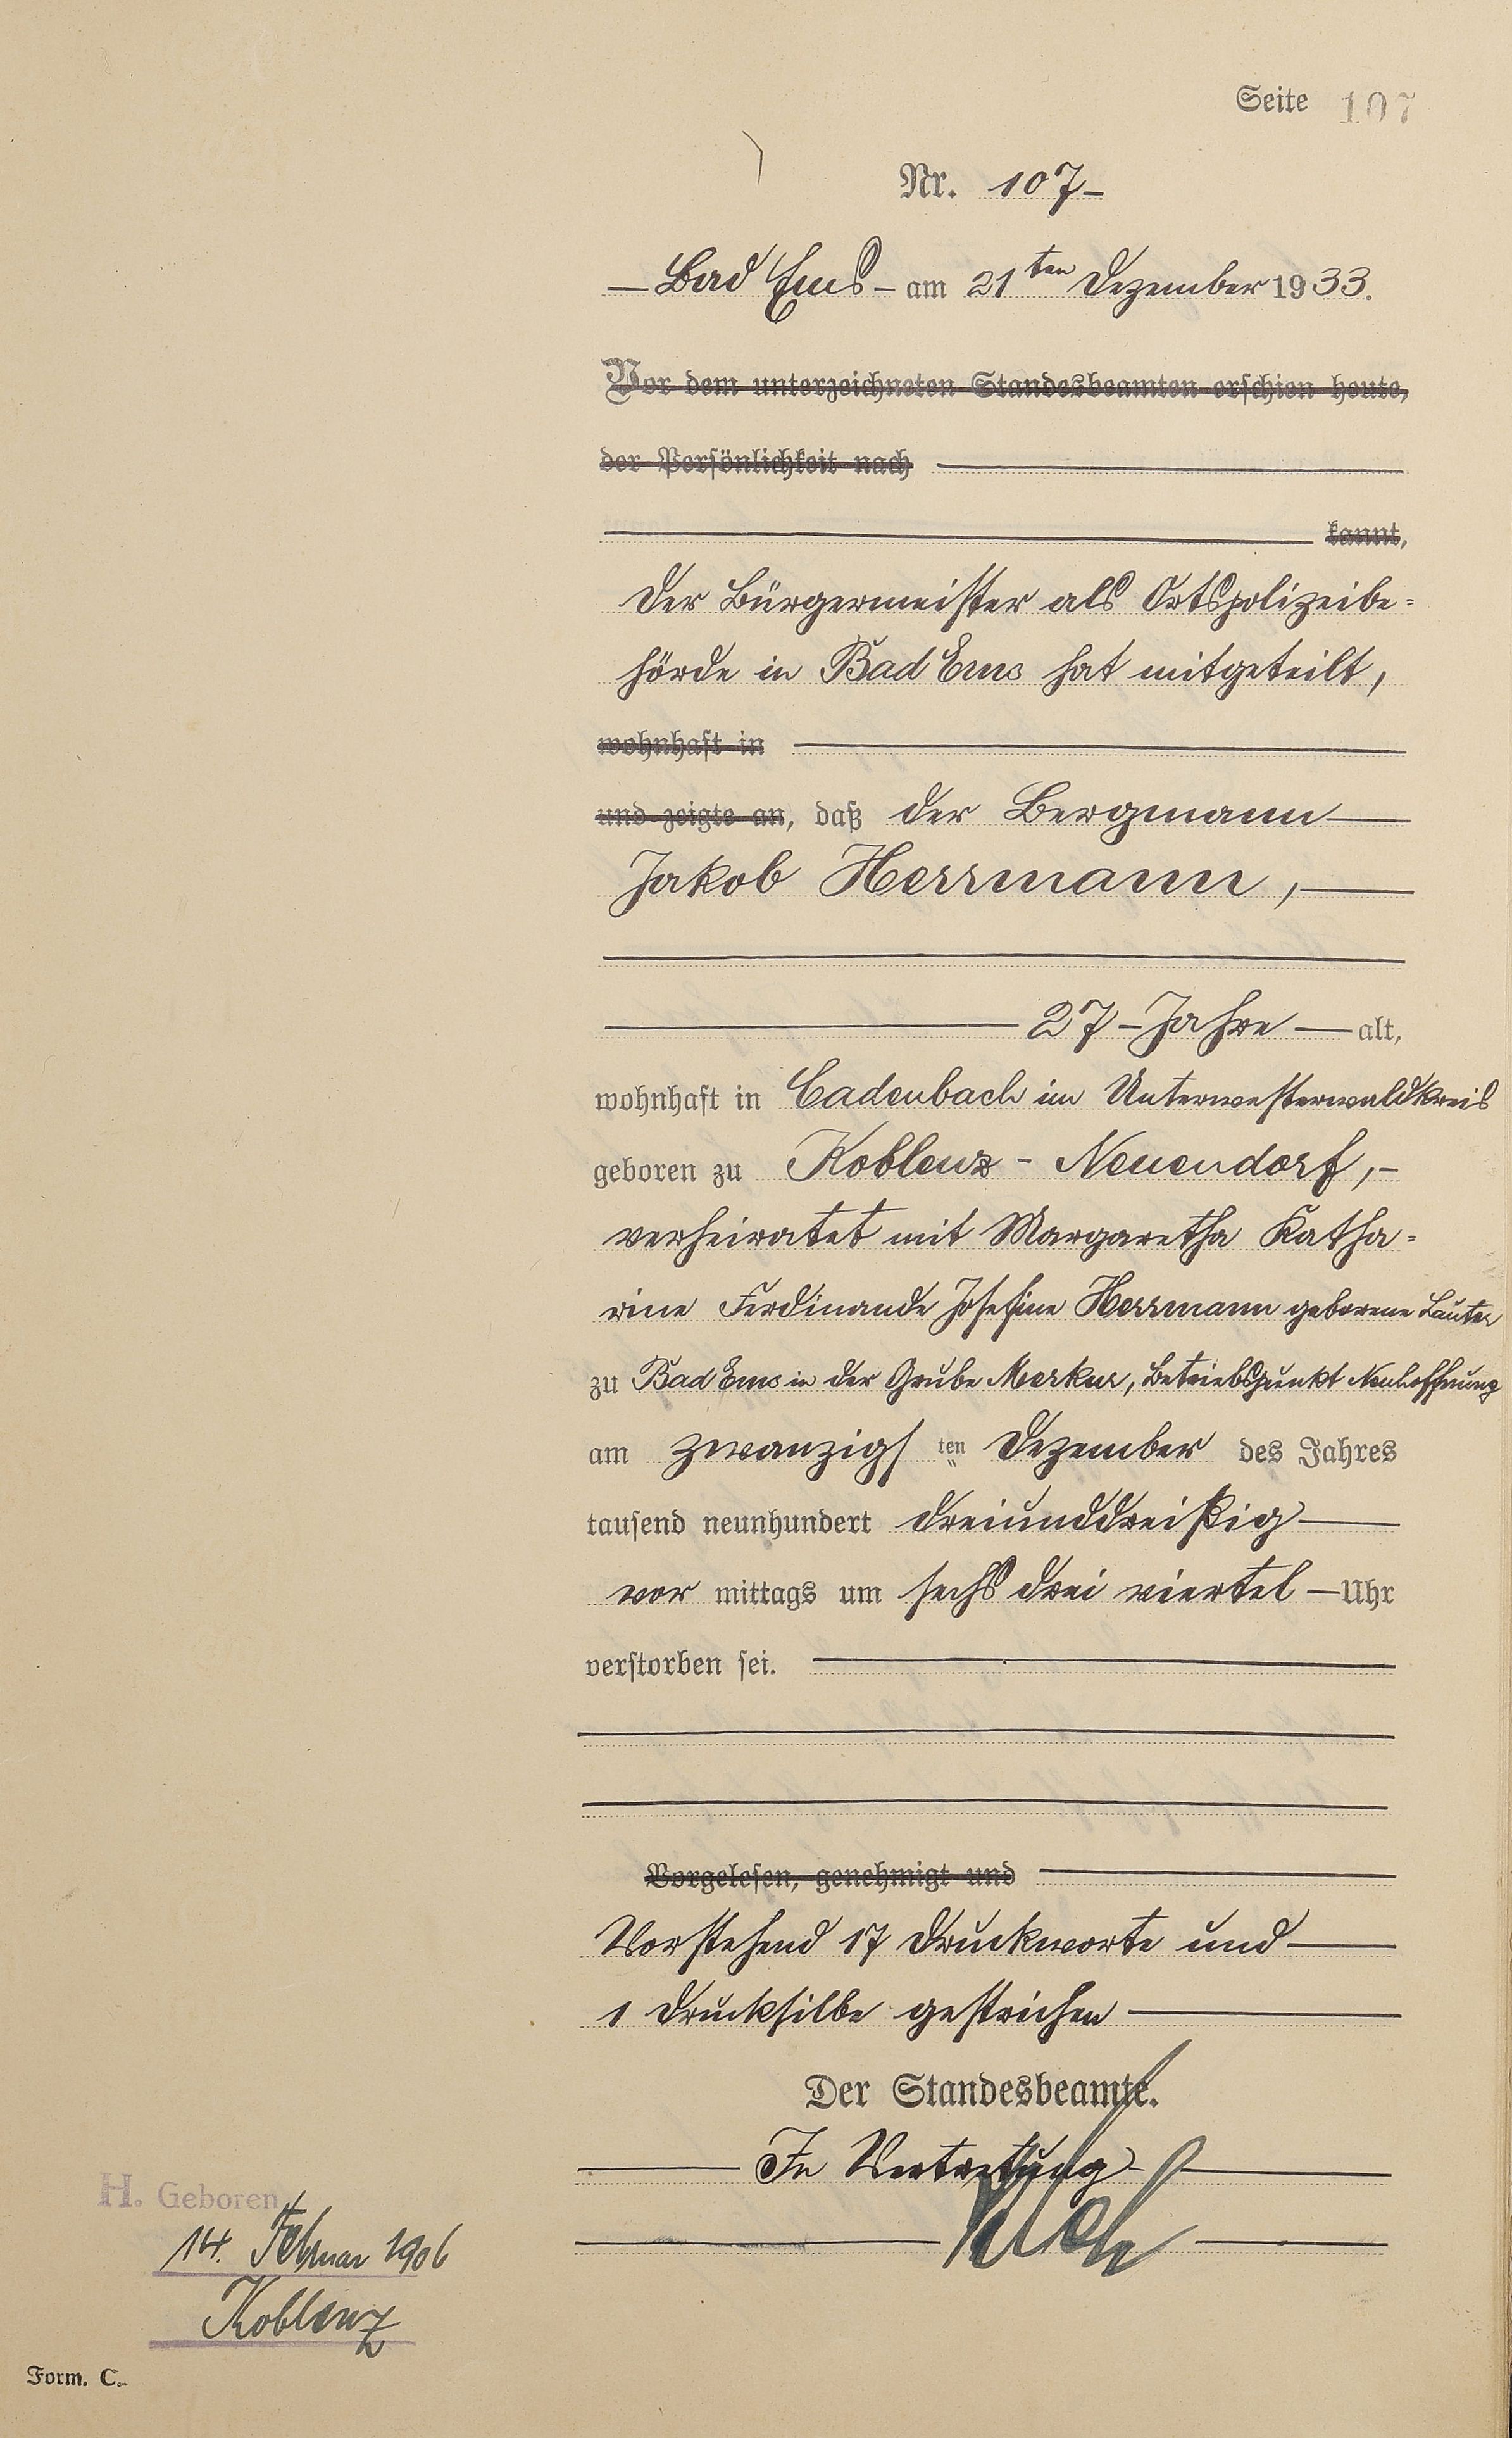 Seite 107
Nr. 107-
— Bad Ems - am 21ten Dezember 1933.
Vor dem unterzeichneten Standesbeamten erschien heute,
der Persönlichkeit nach
kannt,
Der Bürgermeister als Ortspolizeibe=
hörde in Bad Ems hat mitgeteilt,
wohnhaft in
und zeigte an, daß der Bergmann —
Jakob Herrmann, —
— 27 - Jahre — alt,
wohnhaft in Cadenbach im Unterwesterwaldkreis
geboren zu Koblenz - Neuendorf, -
verheiratet mit Margaretha Katha=
rine Ferdinande Josefine Herrmann geborene Lauter
zu Bad Ems in der Grube Merkur, Betriebspunkt Neuhoffnung
am zwanzigsten Dezember des Jahres
tausend neunhundert dreiunddreißig —
vor mittags um sechs drei viertel — Uhr
verstorben sei. —
Vorgelesen, genehmigt und —
Vorstehend 17 Druckworte und —
1 Drucksilbe gestrichen —
Der Standesbeamte.
— In Vertretung —
H. Geboren
14. Februar 1906
Koblenz
Form. C.